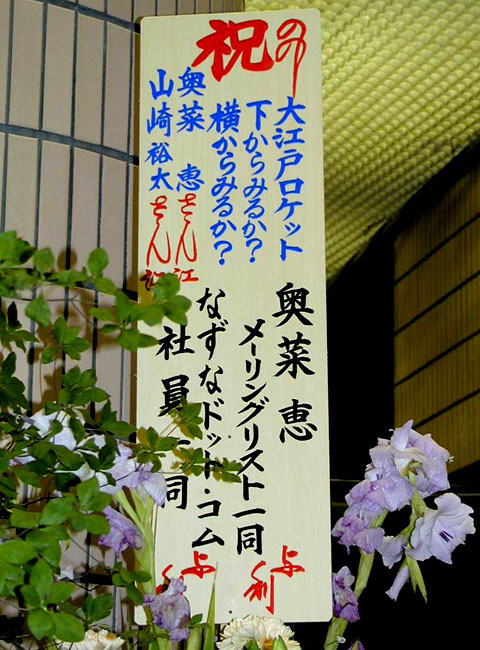 祝
大江戸ロケット
下からみるか?
横からみるか?
奥菜 恵さん江
山崎裕太さん江
奥菜 恵
メーリングリスト一同
より
なずなドット・コム
社員一同
より